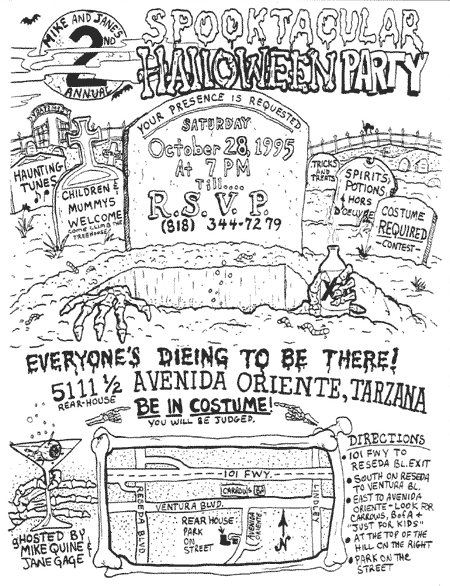 MIKE AND JANE'S
2ND
ANNUAL
SPOOKTACULAR
HALLOWEEN PARTY
YOUR PRESENCE IS REQUESTED
SATURDAY
October 28, 1995
At 7 PM
Till....
R.S.V.P.
(818) 344-7279
HAUNTING
TUNES
CHILDREN &
MUMMYS
WELCOME
COME CLIMB THE
TREEHOUSE!
TRICKS
AND
TREATS
SPIRITS,
POTIONS
& HORS
D'OEUVRE
COSTUME
REQUIRED
-CONTEST-
X
EVERYONE'S DIEING TO BE THERE!
5111 ½ AVENIDA ORIENTE, TARZANA
REAR-HOUSE
BE IN COSTUME!
YOU WILL BE JUDGED.
HOSTED BY
MIKE QUINE &
JANE GAGE
101 FWY.
CARROWS BA
VENTURA BLVD.
RESEDA BLVD
LINDLEY
REAR HOUSE
PARK
ON
STREET
AVENIDA
ORIENTE
N
DIRECTIONS
• 101 FWY TO
RESEDA BL. EXIT
• SOUTH ON RESEDA
TO VENTURA BL.
• EAST TO AVENIDA
ORIENTE - LOOK FOR
CARROWS, BofA &
"JUST FOR KIDS"
• AT THE TOP OF THE
HILL ON THE RIGHT
• PARK ON THE
STREET